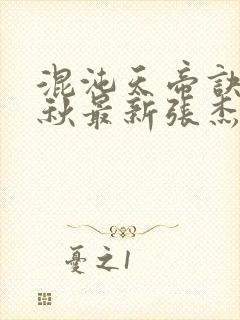 混沌天帝訣
秋最新張杰
憂之1